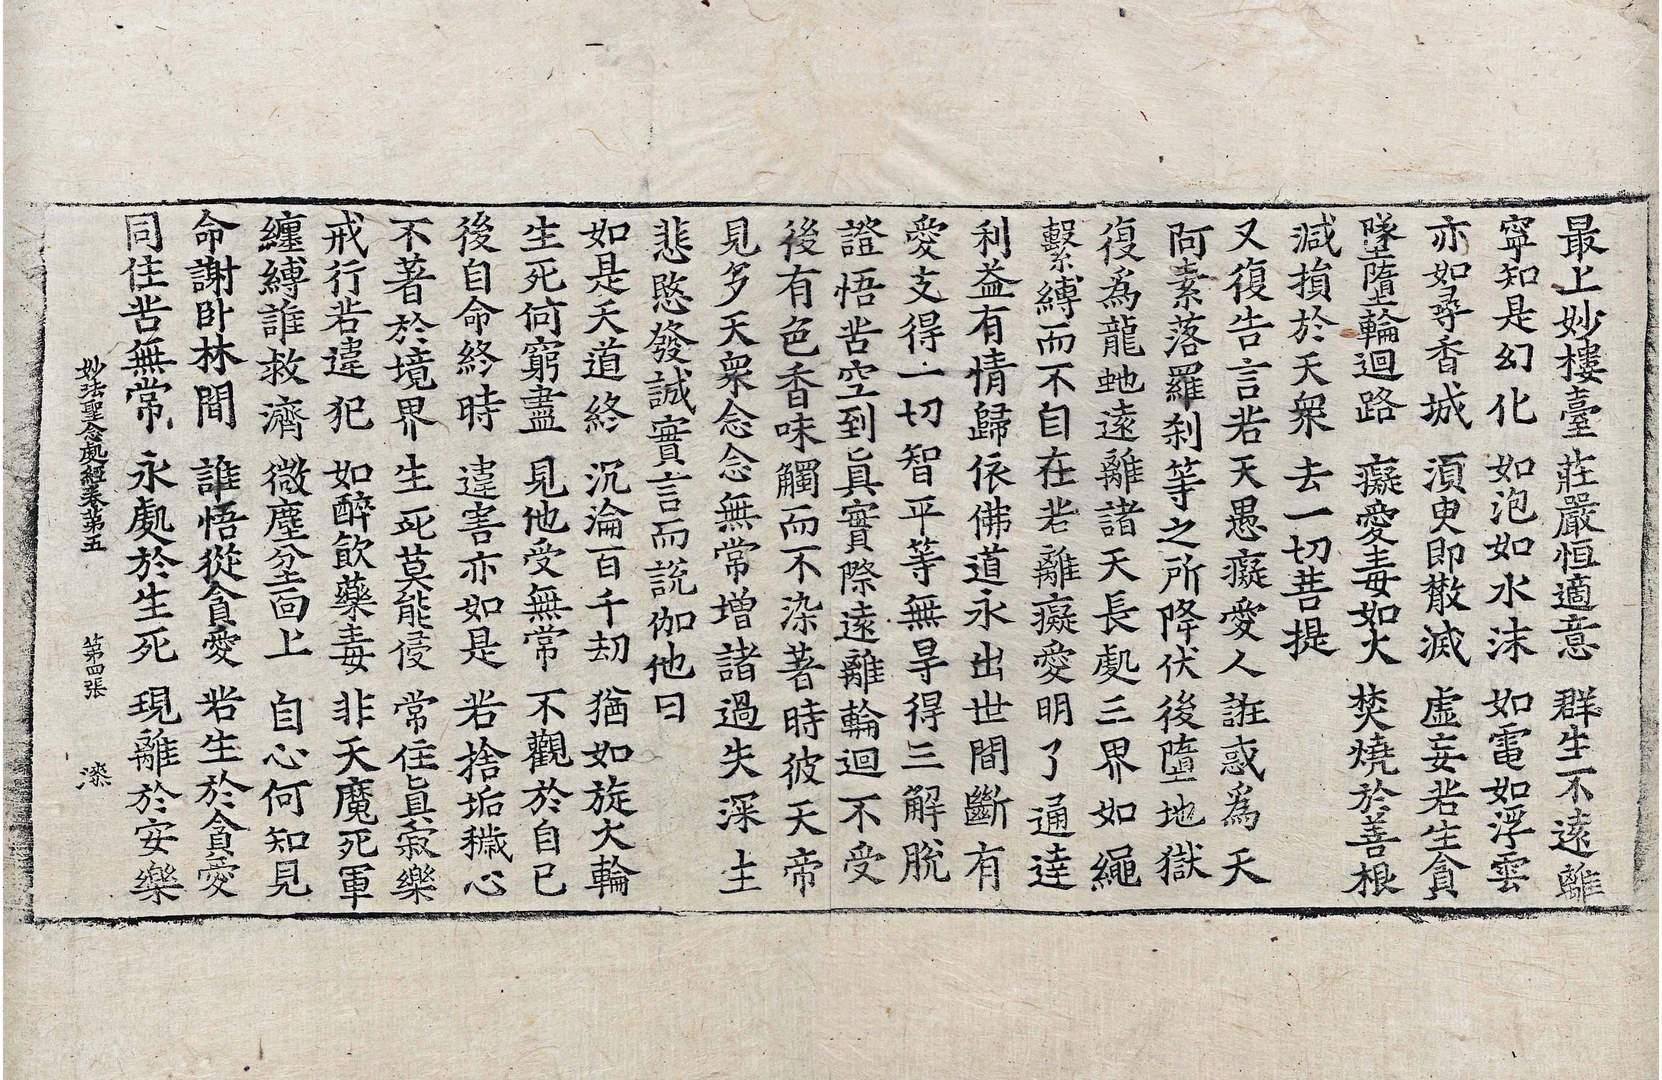 最上妙樓臺 莊嚴恒適意 群生不遠離
寜知是幻化 如泡如水沫 如電如浮雲
亦如尋香城 湏臾即㪚滅 虛妄若生貪
墜墮輪迴路 癡愛毒如火 焚燒於善根
減損於天衆 去一切菩提
又復告言若天愚癡愛人誑惑爲天
阿素落羅刹等之所降伏後墮地獄
復爲龍虵遠離諸天長處三界如繩
繫縛而不自在若離癡愛明了通達
利益有情歸依佛道永出世間斷有
愛支得一切智平等無㝵得三解脫
證悟苦空到眞實際遠離輪迴不受
後有色香味觸而不染著時彼天帝
見多天衆念念無常増諸過失深生
悲愍發誠實言而說伽他曰
如是天道終 沉淪百千劫 猶如旋火輪
生死何窮盡 見他受無常 不觀於自已
後自命終時 違害亦如是 若捨垢穢心
不著於境界 生死莫能侵 常住眞寂樂
戒行若違犯 如醉飲藥毒 非天魔死軍
纏縛誰救濟 微塵坌面上 自心何知見
命謝卧林間 誰悟從貪愛 若生於貪愛
同住苦無常 永處於生死 現離於安樂
妙法聖念處經卷第五 第四張 漆